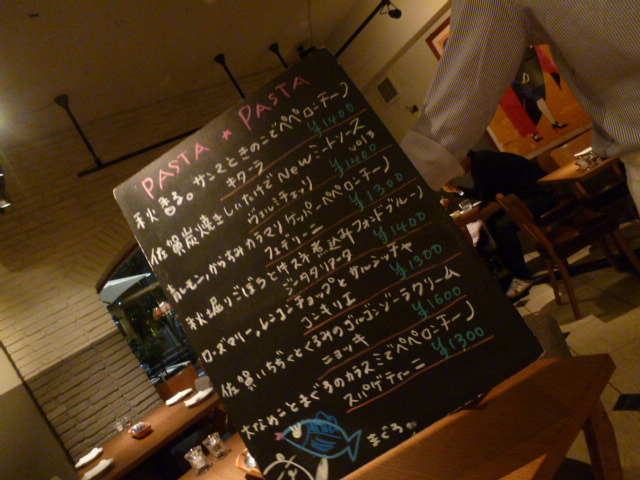 PASTA ★ PASTA
秋香る。サンマときのこでペペロンチーノ
キタッラ ¥1400
佐賀炭焼きしいたけでNewミートソース vol.3
ヴェルミチェッリ ¥1400
青レモン、からすみ カラマリ ケッパー ペペロンチーノ
フェデリーニ ¥1300
秋堀りごぼうと仔牛煮込み フォンドブルーノ
¥1400
ローズマリー、レンコンチップとサルシッチャ
コンキリエ ¥1300
佐賀いちじくとくるみのゴルゴンゾーラクリーム
ニョッキ ¥1600
大なめことまぐろのカラスミでペペロンチーノ
スパゲティーニ ¥1300
まぐろ。